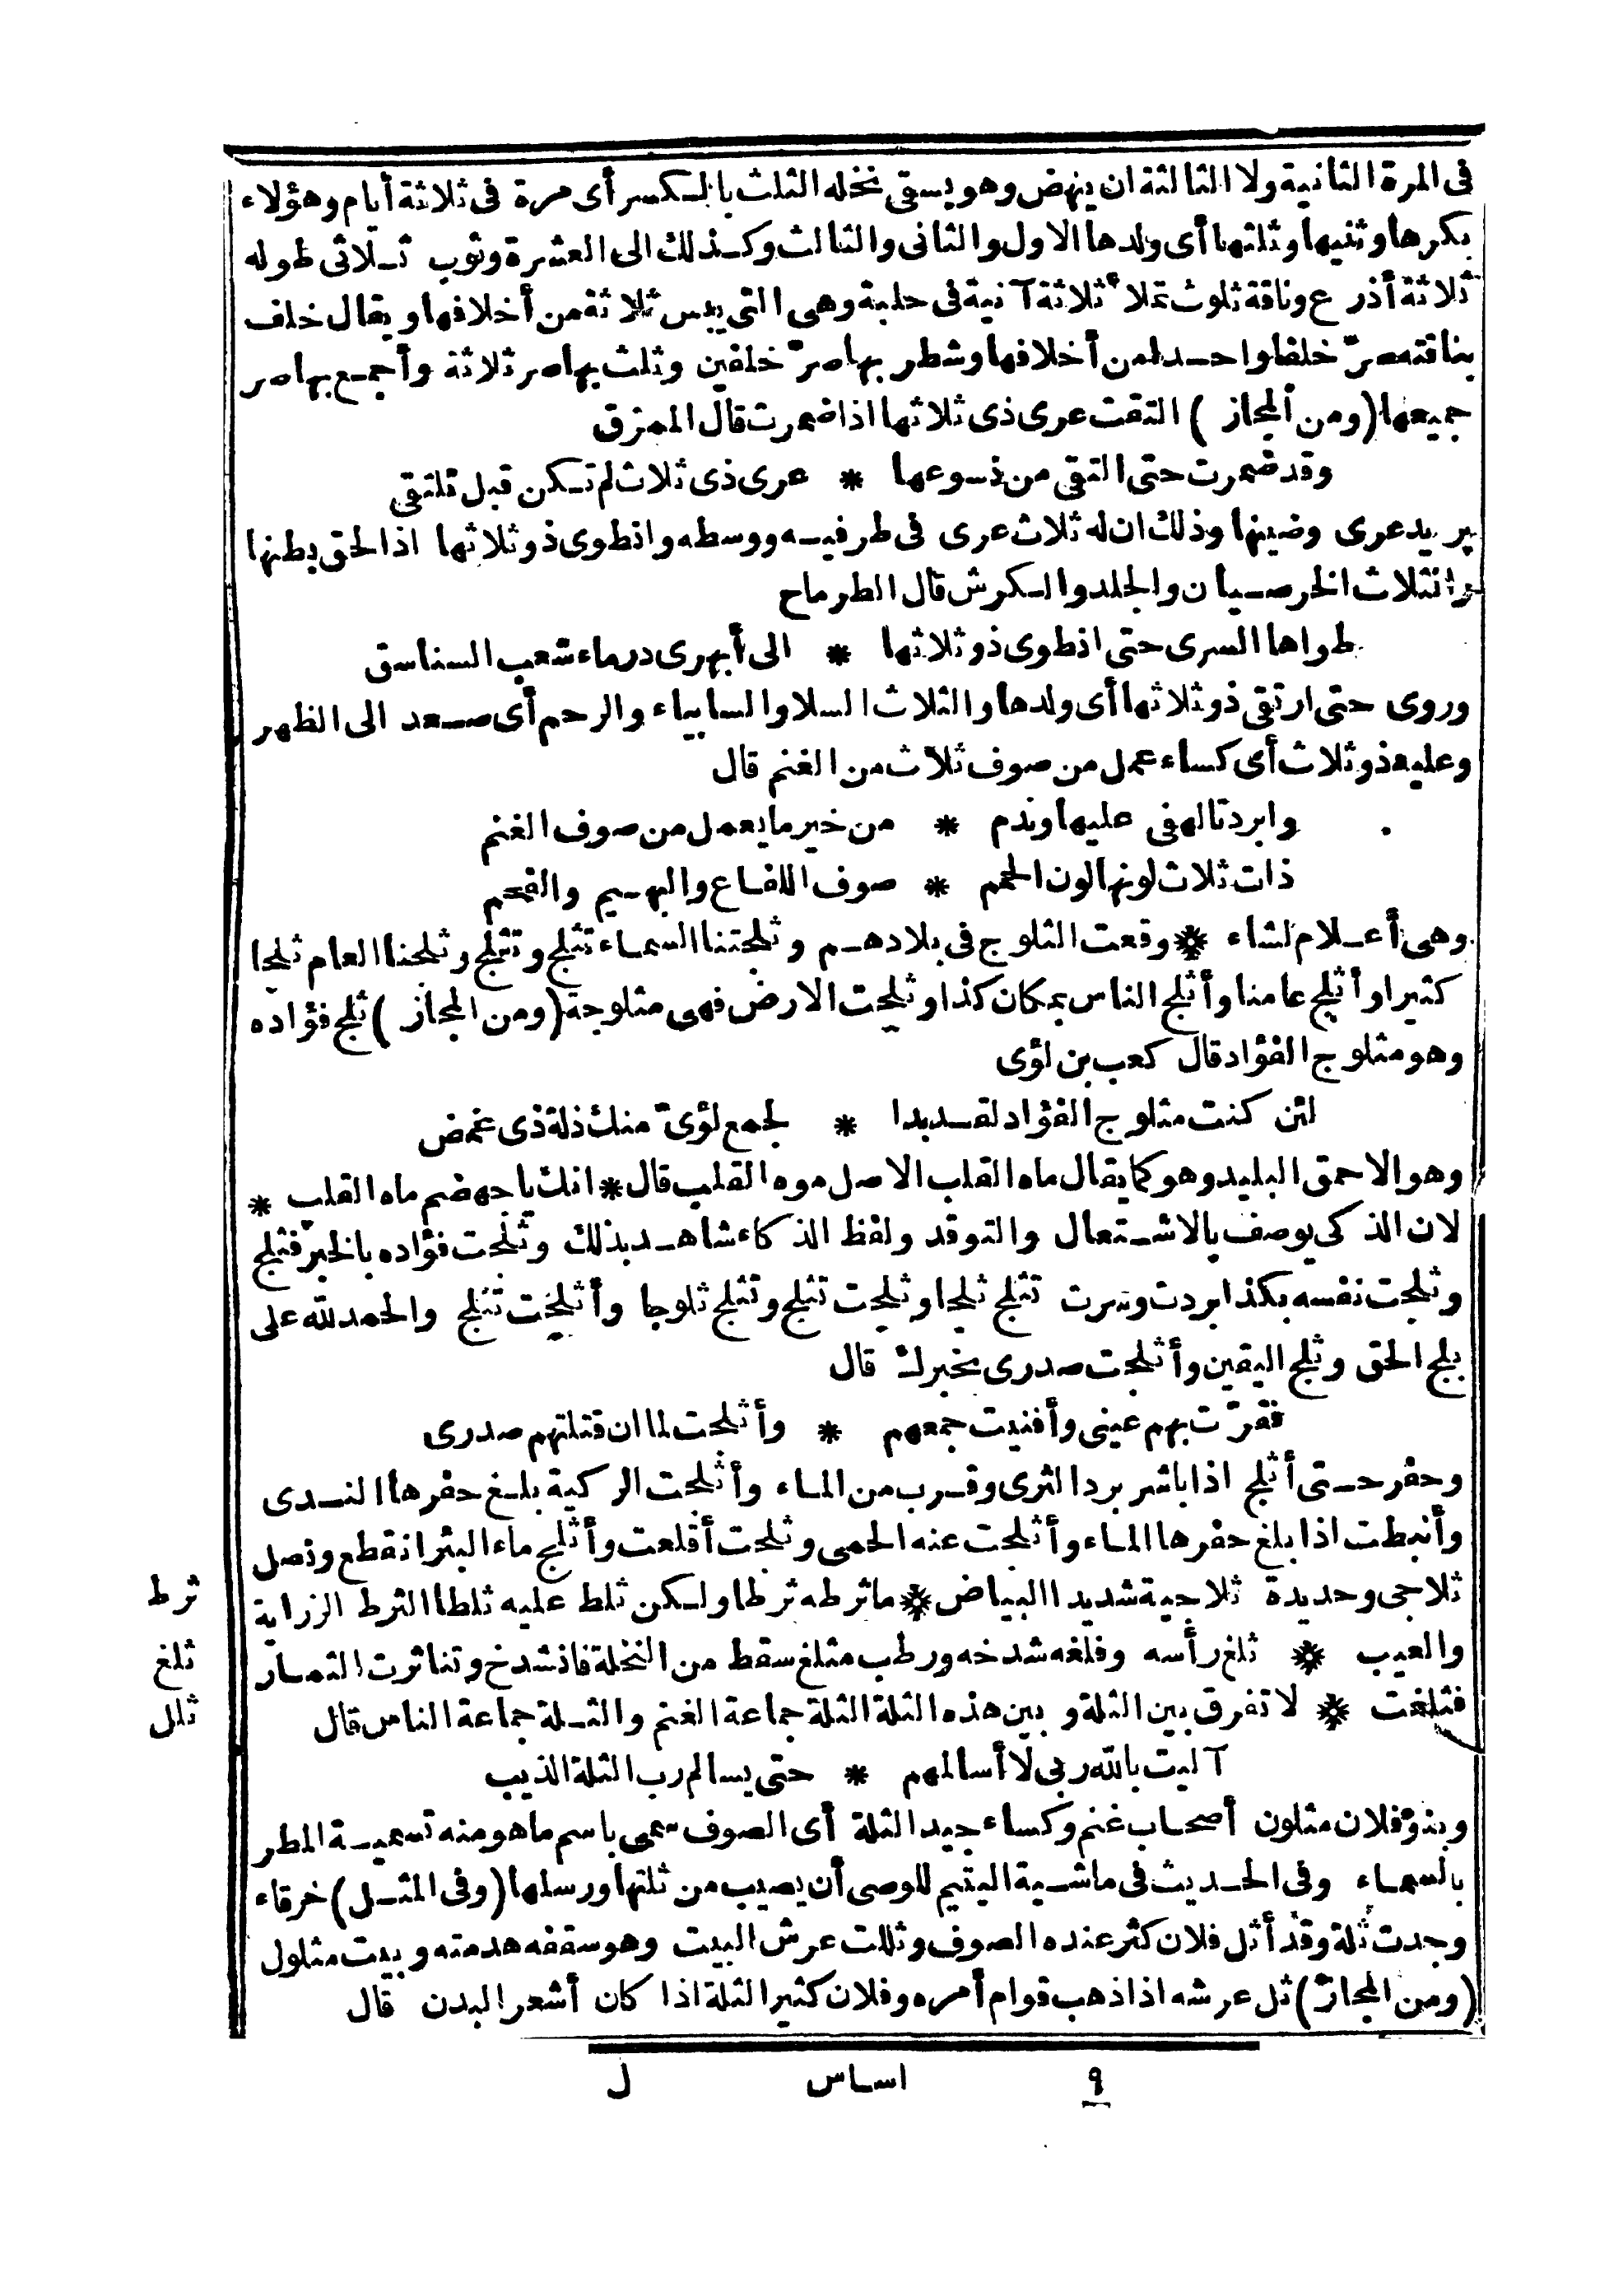 فى المرة الثانية ولا الثالثة ان ينهض وهو يسقى نخله الثلث بالكسر أى مرة فى ثلاثة أيام وهؤلاء
بكرها وثنيها وثلثها أى ولدها الاول والثانى والثالث وكذلك الى العشرة وثوب ثلاثى طوله
ثلاثة أذرع وناقة ثلوث تملأ ثلاثة آنية فى حلبة وهى التى يبس ثلاثة من أخلافها ويقال خلف
بناقته صرّ خلفا واحدا من أخلافها وشطر بها صرّ خلفين وثلث بها صر ثلاثة وأجمع بها صر
جميعها (ومن المجاز) التقت عرى ذى ثلاثها اذا ضمرت قال الممزق
وقد ضمرت حتى التقى من نسوعها * عرى ذى ثلاث لم تكن قبل تلتقى
يريد عرى وضينها وذلك ان له ثلاث عرى فى طرفيه ووسطه وانطوى ذو ثلاثها اذا لحق بطنها
والثلاث الخرصيان والجلد والكرش قال الطرماح
طواها السرى حتى انطوى ذو ثلاثها * الى أبهرى درماء شعب السناسق
وروى حتى ارتقى ذو ثلاثها أى ولدها والثلاث السلا والسابياء والرحم أى صعد الى الظهر
وعليه ذو ثلاث أى كساء عمل من صوف ثلاث من الغنم قال
وابردتا لهفى عليها وندم * من خير ما يعمل من صوف الغنم
ذات ثلاث لونها لون الحمم * صوف اللفاع والبهيم والقحم
وهى أعلام لشاء * وقعت الثلوج فى بلادهم وثلجتنا السماء تثلج وتثلج وثلجنا العام ثلجا
كثيرا وأثلج عامنا وأثلج الناس بمكان كذا وثلجت الارض فهى مثلوجة (ومن المجاز) ثلج فؤاده
وهو مثلوج الفؤاد قال كعب بن لؤى
لئن كنت مثلوج الفؤاد لقد بدا * لجمع لؤىّ منك ذلة ذى غمض
وهو الاحمق البليد وهو كما يقال ماه القلب الاصل موه القلب قال * انك يا جهضم ماه القلب *
لان الذكى يوصف بالاشتعال والتوقد ولفظ الذكاء شاهد بذلك وثلجت فؤاده بالخبر فثلج
وثلجت نفسه بكذا بردت وسرت تثلج ثلجا وثلجت تثلج وتثلج ثلوجا وأثلجت تثلج والحمد لله على
بلج الحق وثلج اليقين وأثلجت صدرى بخبرك قال
فقرّت بهم عينى وأفنيت جمعهم * وأثلجت لما ان قتلتهم صدرى
وحفر حتى أثلج اذا باشر برد الثرى وقرب من الماء وأثلجت الركية بلغ حفرها الندى
وأنبطت اذا بلغ حفرها الماء وأثلجت عنه الحمى وثلجت أقلعت وأثلج ماء البئر انقطع ونصل
ثلاجى وحديدة ثلاجية شديدا البياض * ما ثرطه ثرطا ولكن ثلط عليه ثلطا الثرط الزراية
ثرط
والعيب * ثلغ رأسه وفلغه شدخه ورطب مثلغ سقط من النخلة فانشدخ وتناثرت الثمار
ثلغ
فثلغت * لا تفرق بين الثلة وبين هذه الثلة الثلة جماعة الغنم والثلة جماعة الناس قال
ثلل
آليت بالله ربى لا أسالمهم * حتى يسالم رب الثلة الذيب
وبنو فلان مثلون أصحاب غنم وكساء جيد الثلة أى الصوف سمى باسم ما هو منه تسمية المطر
بالسماء وفى الحديث فى ماشية اليتيم للوصى أن يصيب من ثلتها ورسلها (وفى المثل) خرقاء
وجدت ثلة وقد أثل فلان كثر عنده الصوف وثللت عرش البيت وهو سقفه هدمته وبيت مثلول
(ومن المجاز) ثل عرشه اذا ذهب قوام أمره وفلان كثير الثلة اذا كان أشعر البدن قال
٩ اساس ل